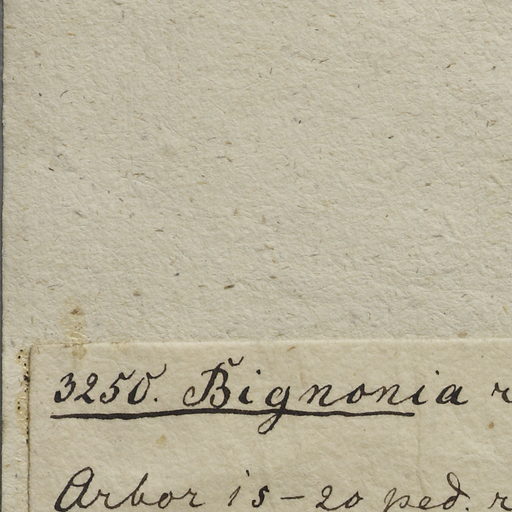 3250. Bignonia
Arbor 15-20 ped.